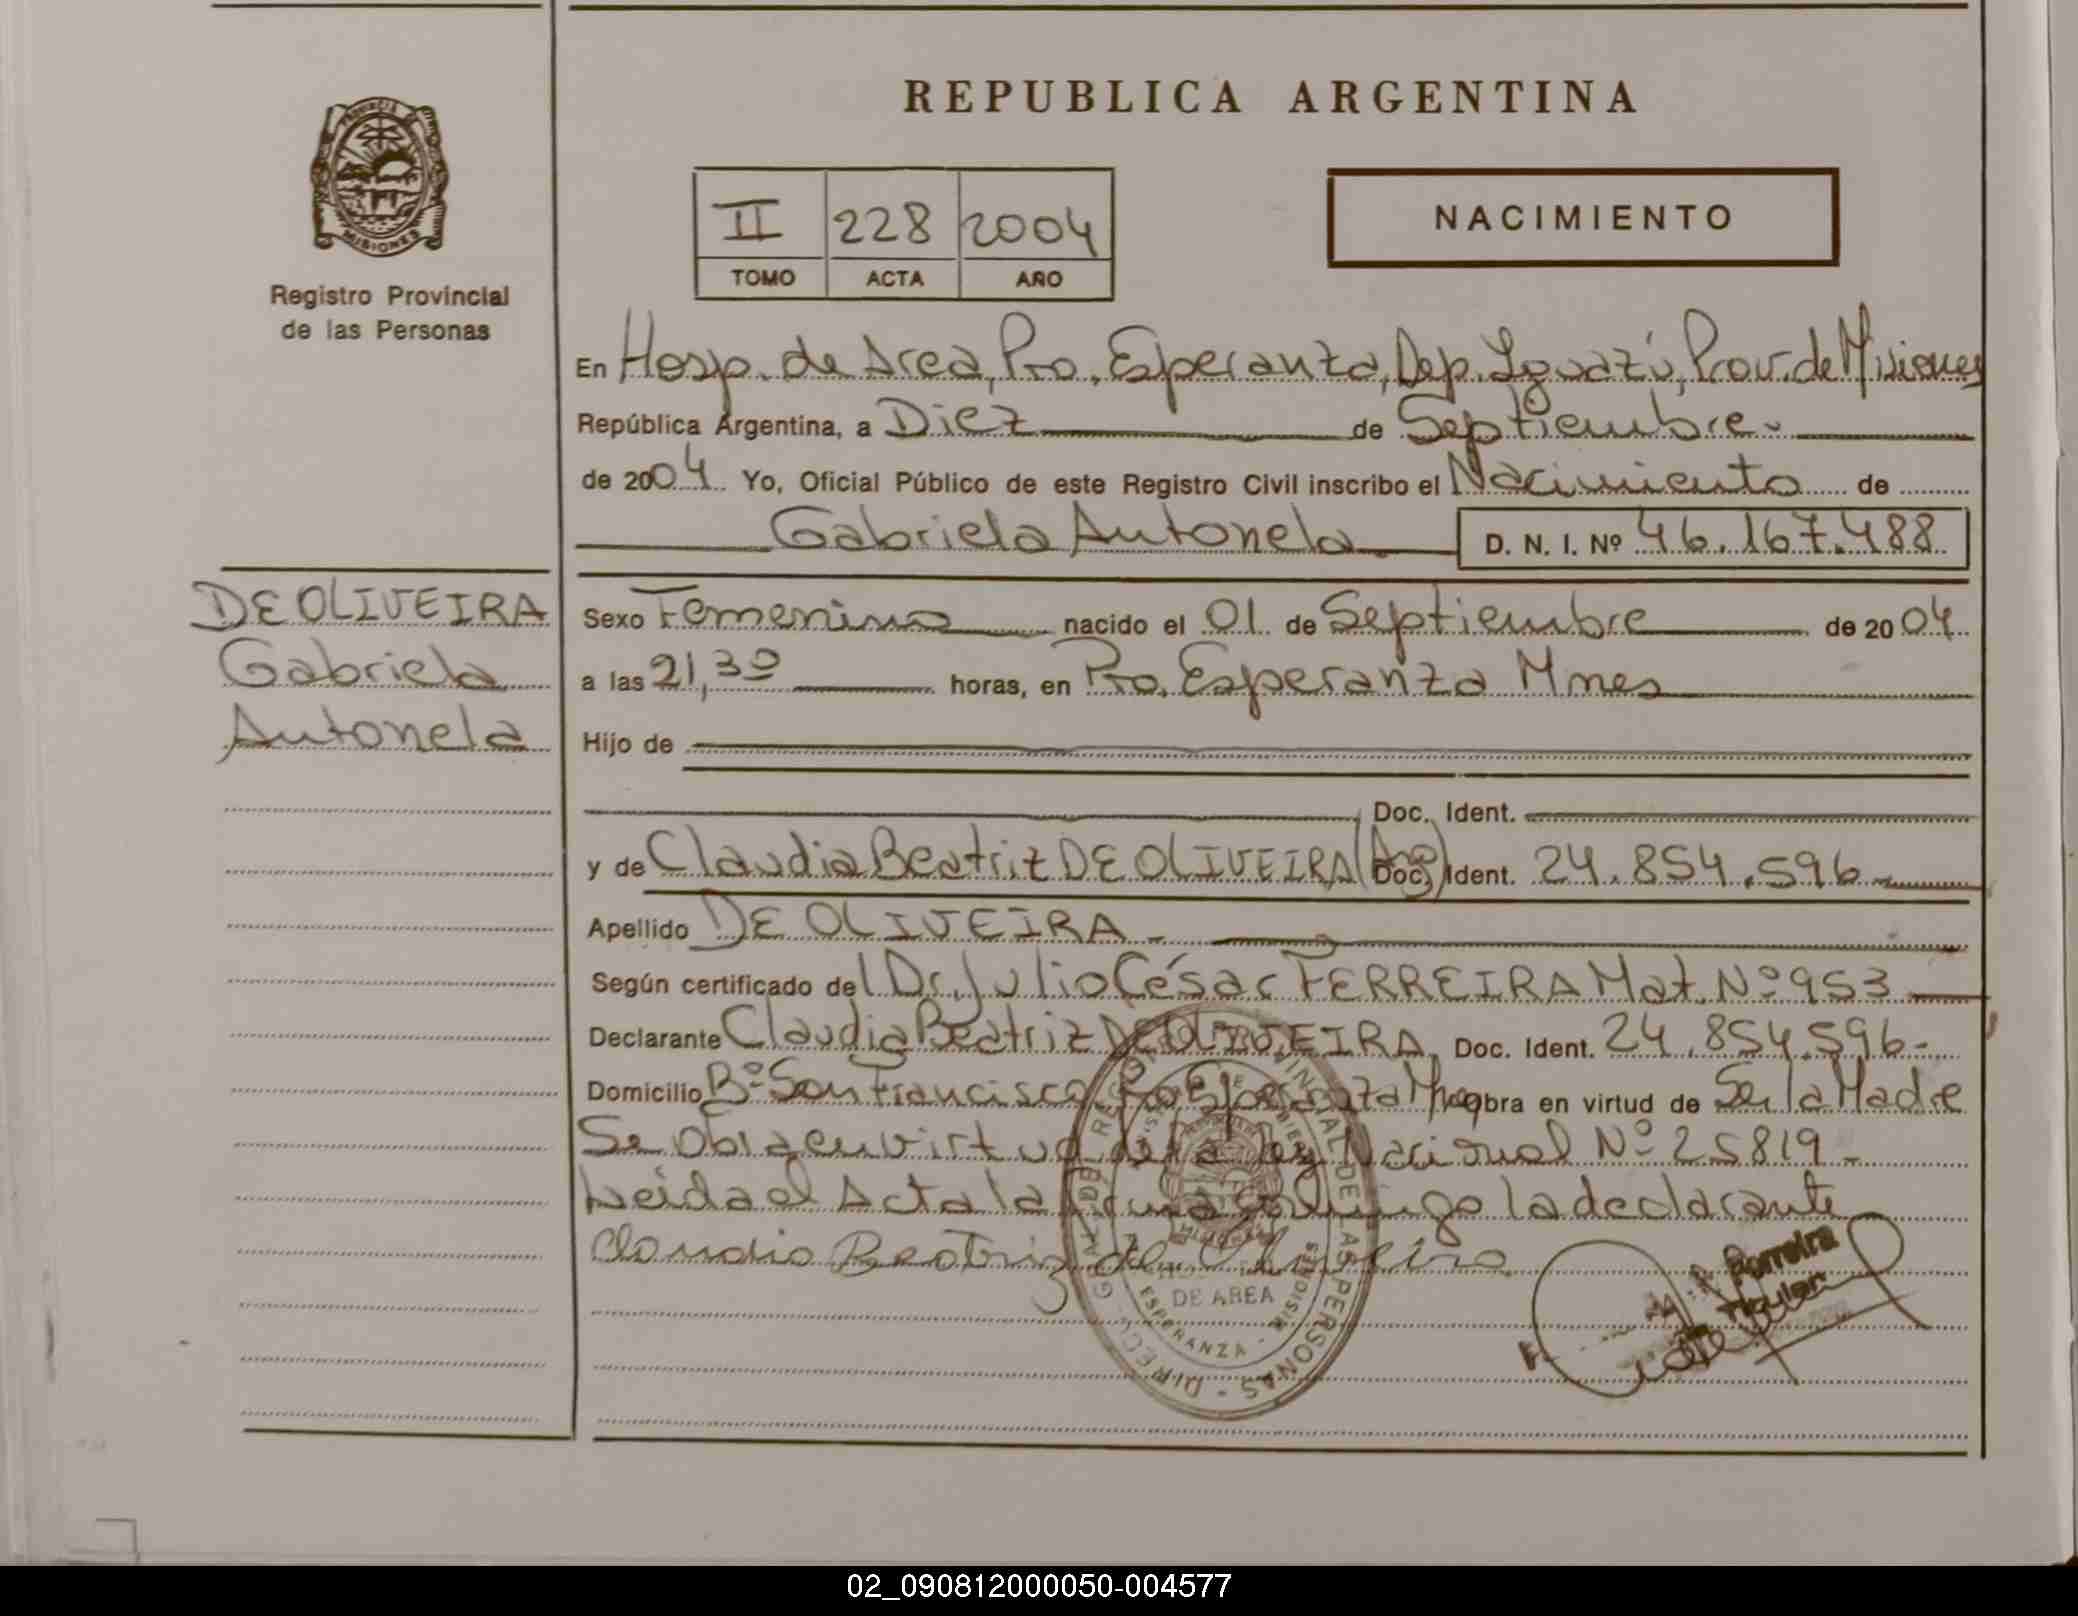 REPUBLICA ARGENTINA
PROVINCIA DE
MISIONES
Registro Provincial
de las Personas
II 228 2004
TOMO ACTA AÑO
NACIMIENTO
En Hosp. de Area, Pto. Esperanza, Dep. Iguazú, Prov. de Misiones
República Argentina, a Diez de Septiembre.
de 2004 Yo, Oficial Público de este Registro Civil inscribo el Nacimiento de
Gabriela Antonela D. N. I. Nº 46.167.488
DE OLIVEIRA
Gabriela
Antonela
Sexo Femenino nacido el 01 de Septiembre de 2004
a las 21,30 horas, en Pto. Esperanza Mnes
Hijo de
Doc. Ident.
y de Claudia Beatriz DE OLIVEIRA (Arg) Doc. Ident. 24.854.596
Apellido DE OLIVEIRA
Según certificado del Dr. Julio César FERREIRA Mat. Nº 953
Declarante Claudia Beatriz DE OLIVEIRA Doc. Ident. 24.854.596-
Domicilio Bº San Francisco Pto Esperanza Mnes obra en virtud de Ser la Madre
Se obra en virtud de la Ley Nacional Nº 25819-
Leida el Acta la firma conmigo la declarante
Claudia Beatriz de Oliveira
DE AREA
ESPERANZA - MISIONES
DE LAS PERSONAS
Titular
02_090812000050-004577